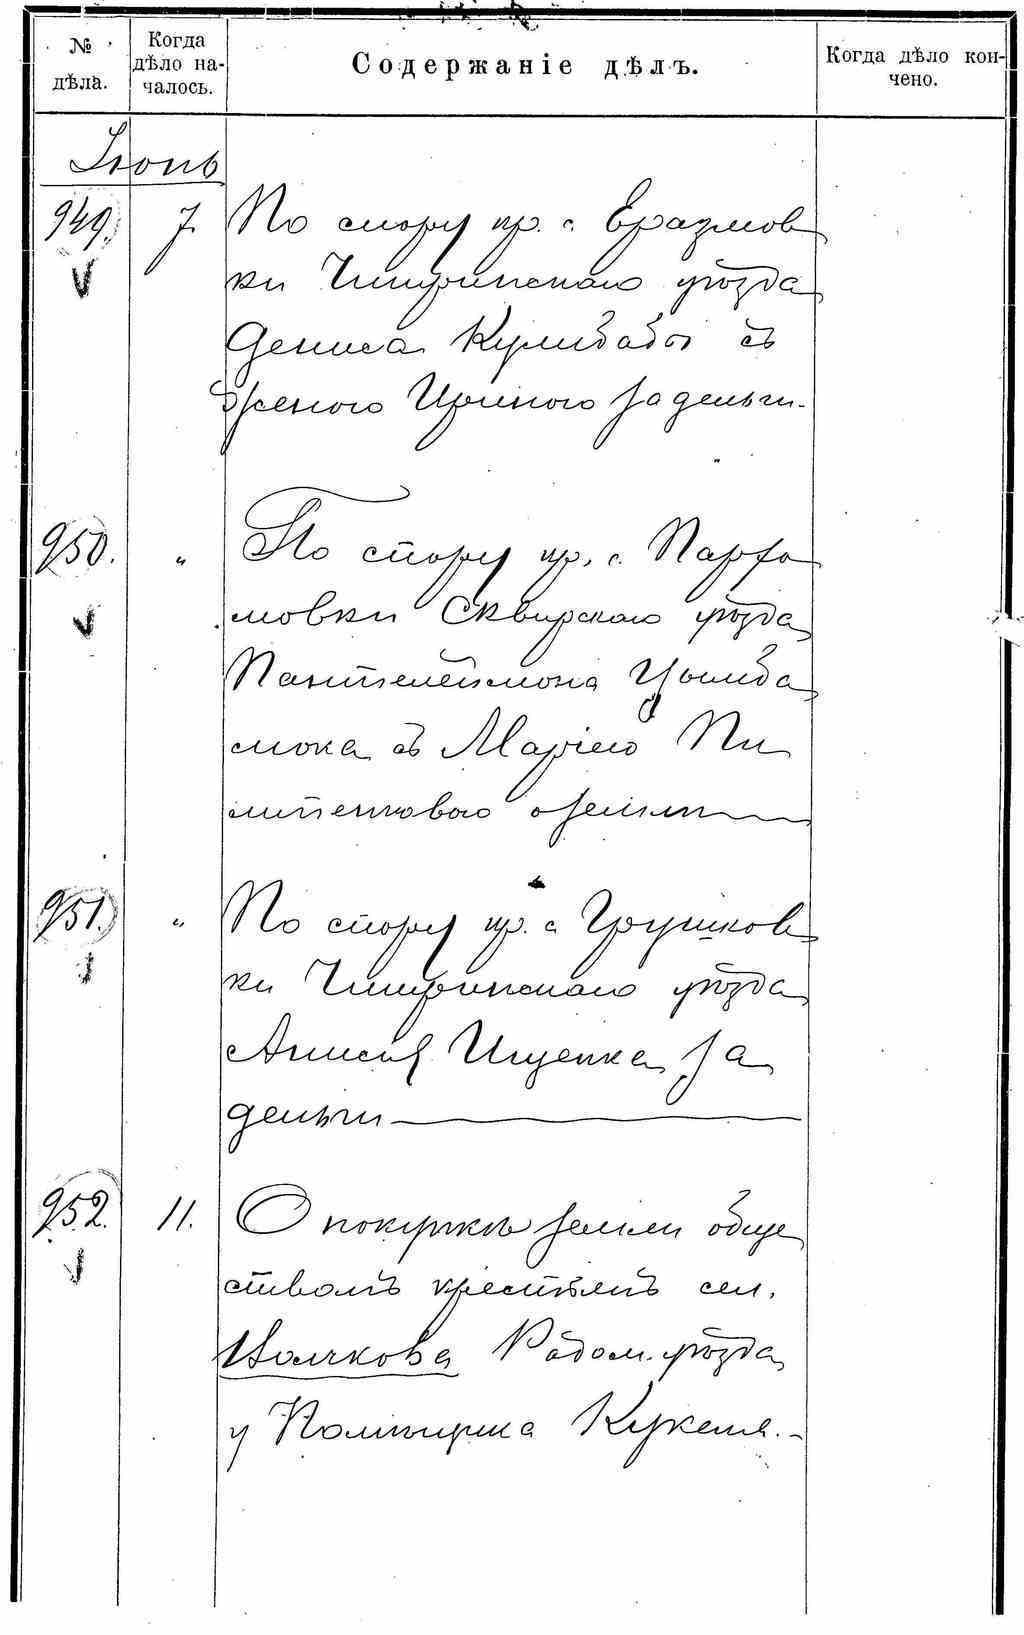 № дѣла.
Когда дѣло на-
чалось.
Содержаніе дѣлъ.
Когда дѣло кон-
чено.
Іюнь
949. 7. По спору кр. с. Еразмов
ки Чигиринскаго уѣзда
Дениса Кулибабы съ
женою Ириною за деньги.
950. „ По спору кр. с. Парфо
мовки Сквирскаго уѣзда
Пантелеймона Цымба
люка съ Маріею Пи
липенковою о землѣ
951. „ По спору кр. с. Грушков
ки Чигиринскаго уѣзда
Анисіи Ищенка за
деньги
952. 11. О покупкѣ земли обще
ствомъ крестьянъ сел.
Волчкова Радом. уѣзда
у Помѣщика Кукеля.